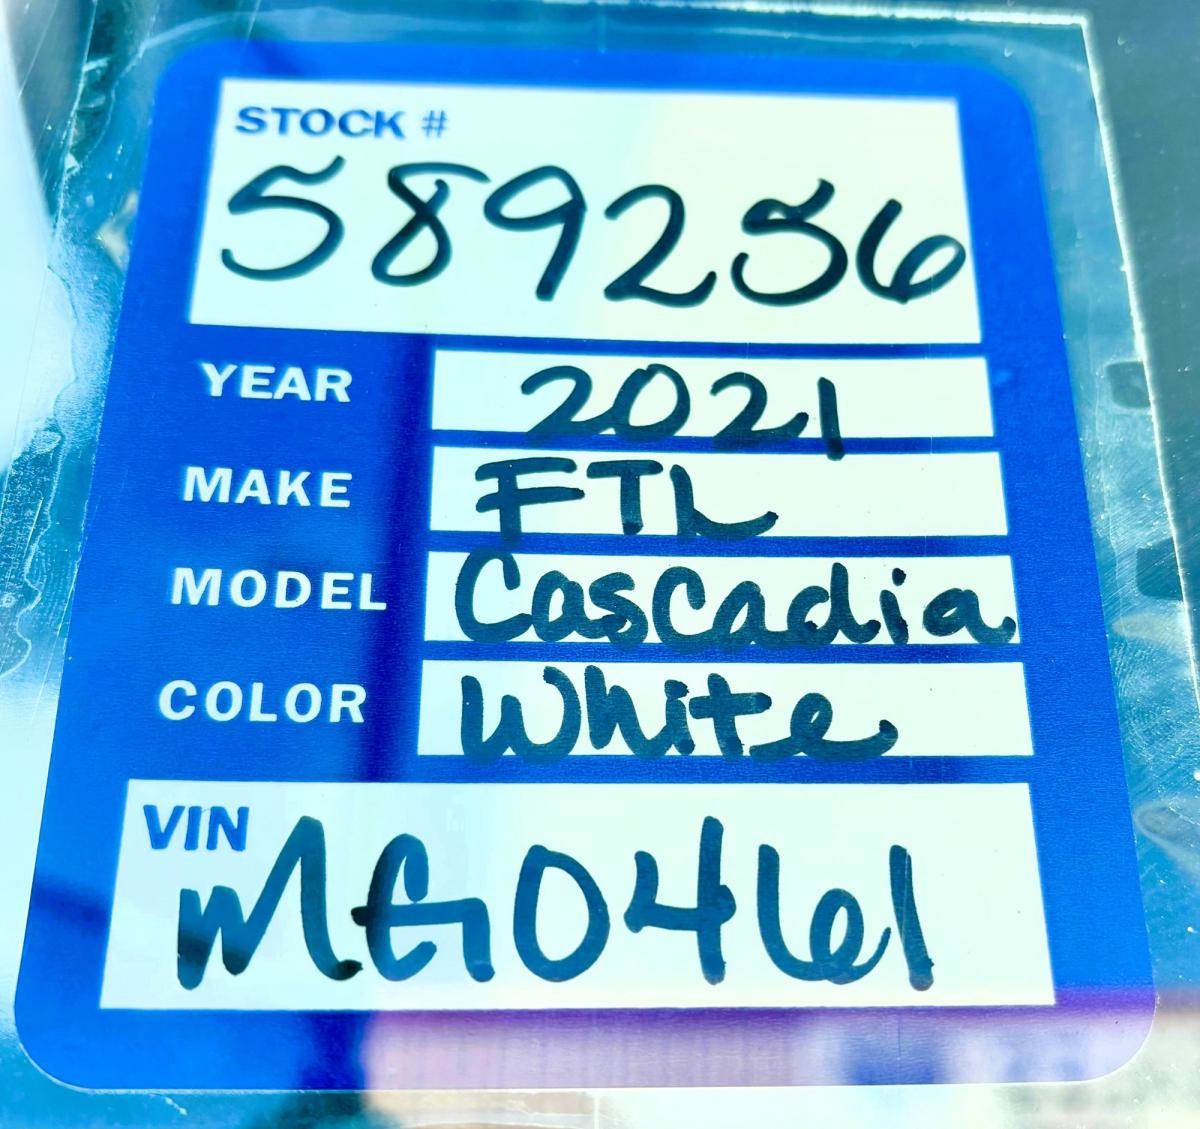 STOCK #
589256
YEAR 2021
MAKE FTL
MODEL Cascadia
COLOR White
VIN
MG0461